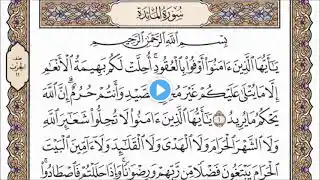 سُورَةُ المَائِدَةِ
بِسْمِ اللَّهِ الرَّحْمَٰنِ الرَّحِيمِ
يَٰٓأَيُّهَا الَّذِينَ ءَامَنُوٓا۟ أَوْفُوا۟ بِالْعُقُودِ أُحِلَّتْ لَكُم بَهِيمَةُ الْأَنْعَٰمِ
إِلَّا مَا يُتْلَىٰ عَلَيْكُمْ غَيْرَ مُحِلِّى الصَّيْدِ وَأَنتُمْ حُرُمٌ إِنَّ اللَّهَ
يَحْكُمُ مَا يُرِيدُ ١ يَٰٓأَيُّهَا الَّذِينَ ءَامَنُوا۟ لَا تُحِلُّوا۟ شَعَٰٓئِرَ اللَّهِ
وَلَا الشَّهْرَ الْحَرَامَ وَلَا الْهَدْىَ وَلَا الْقَلَٰٓئِدَ وَلَآ ءَآمِّينَ الْبَيْتَ
الْحَرَامَ يَبْتَغُونَ فَضْلًا مِّن رَّبِّهِمْ وَرِضْوَٰنًا وَإِذَا حَلَلْتُمْ فَاصْطَادُوا۟